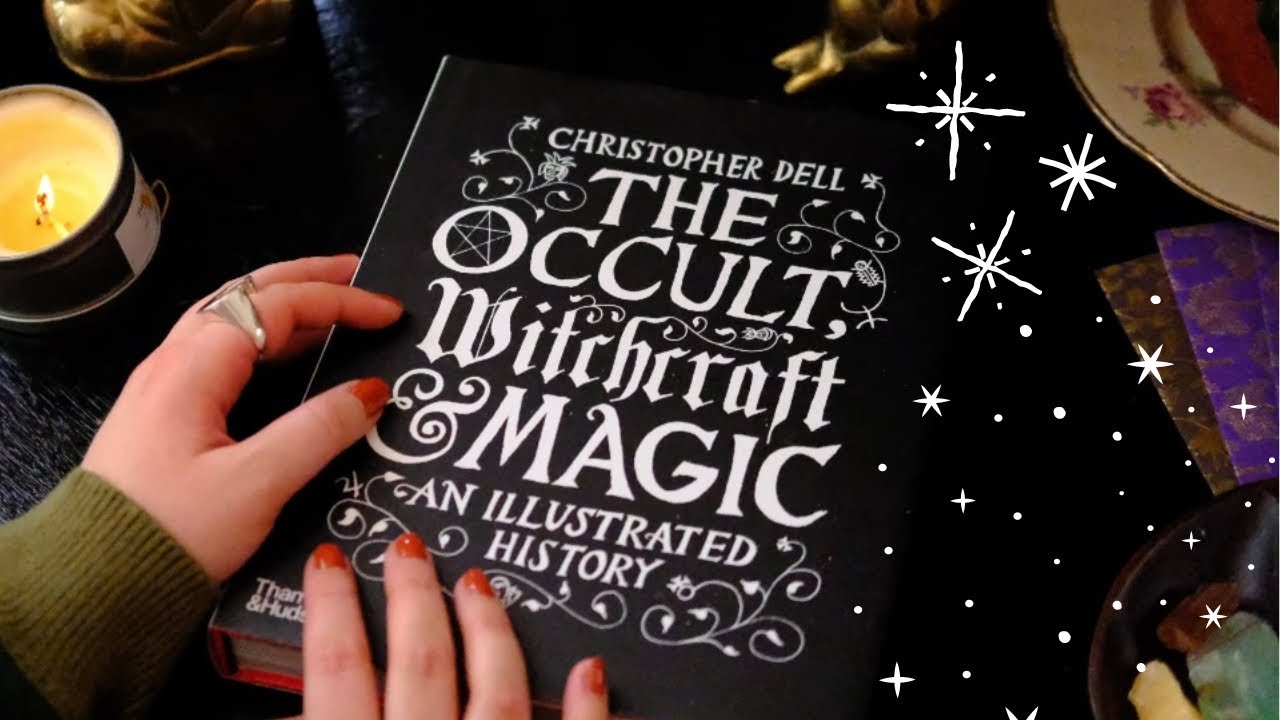 CHRISTOPHER DELL
THE
OCCULT,
Witchcraft
& MAGIC
AN ILLUSTRATED
HISTORY